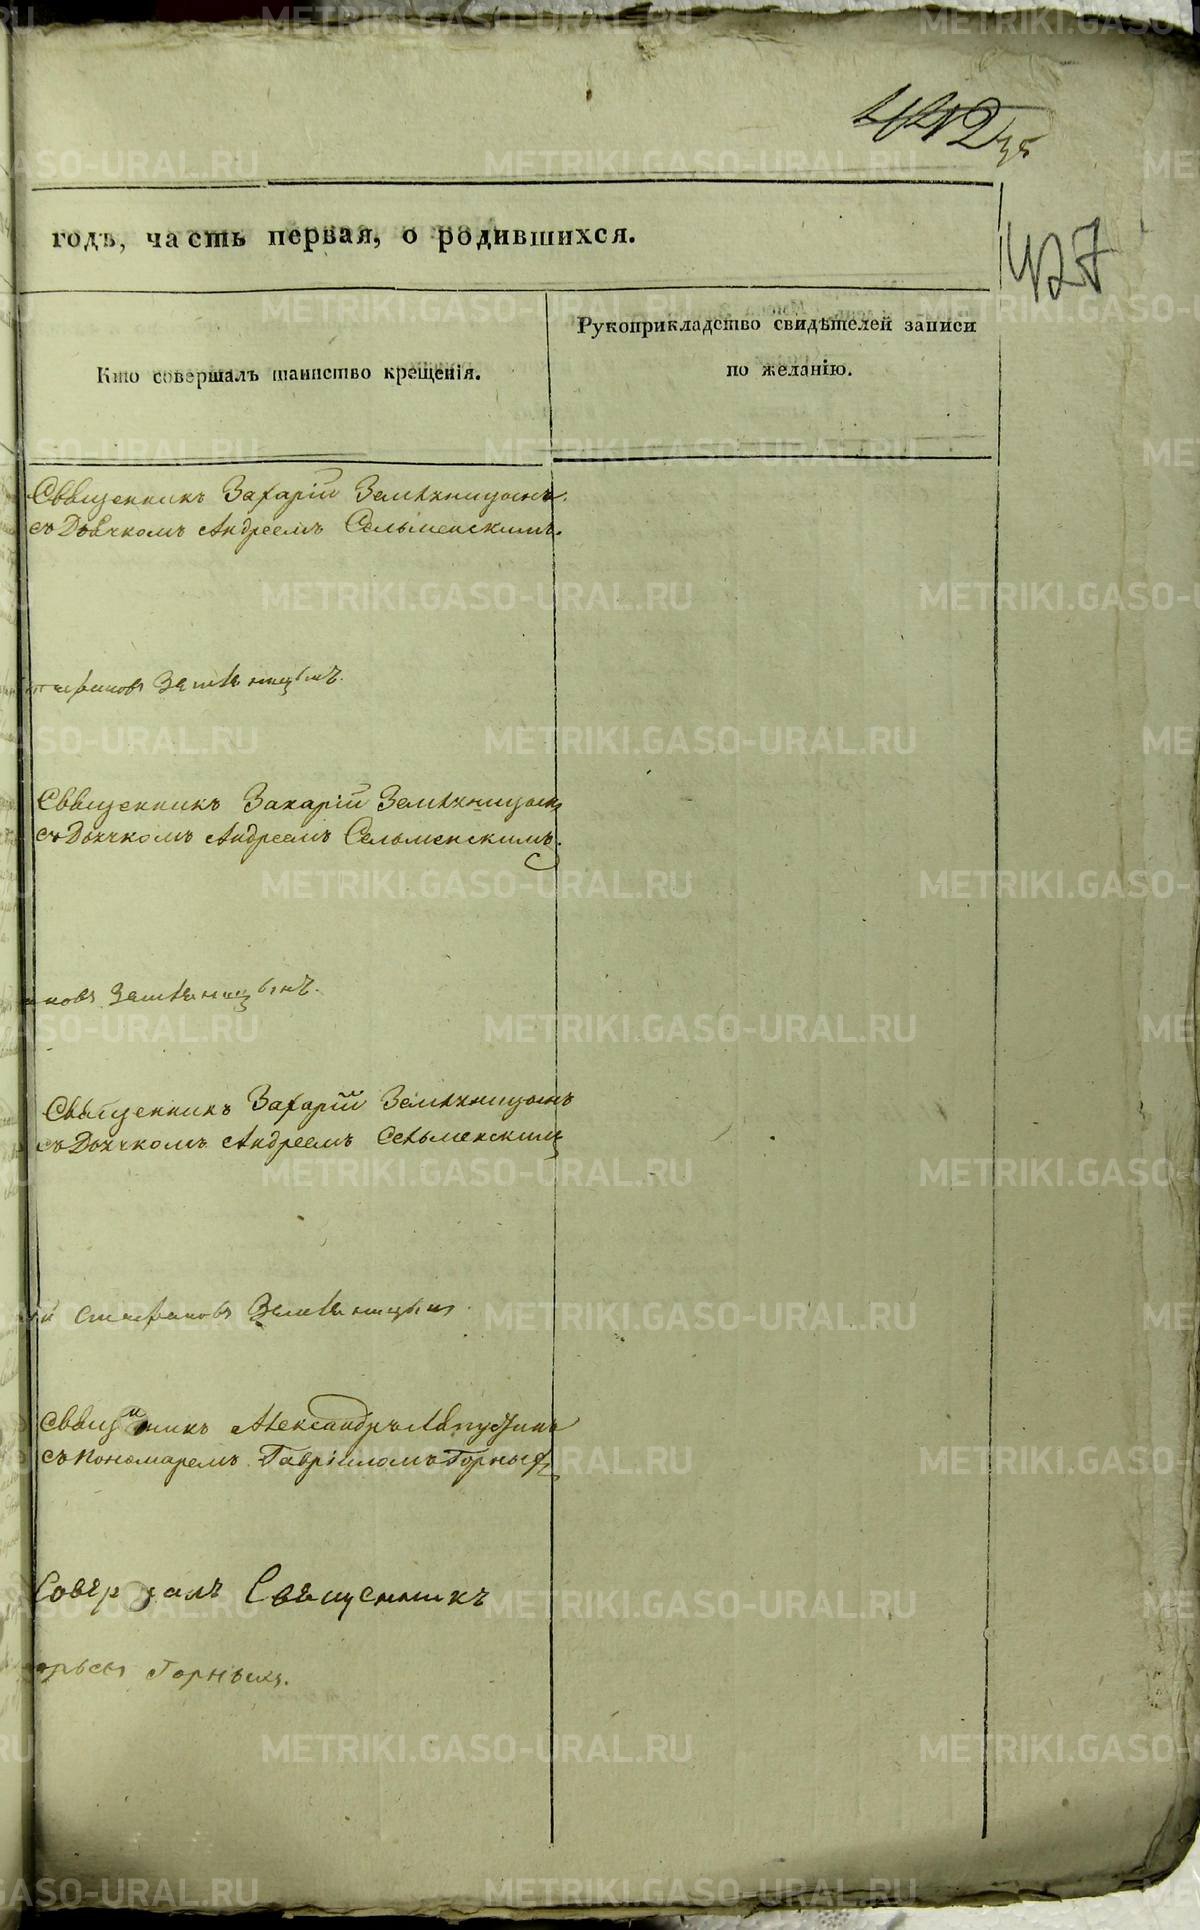 427
годъ, часть первая, о родившихся.
Кто совершалъ таинство крещенія.
Рукоприкладство свидѣтелей записи
по желанію.
Священникъ Захарій Земляницынъ
съ Дьячкомъ Андреемъ Сельменскимъ.
Земляницынъ.
Священникъ Захарій Земляницынъ
съ Дьячкомъ Андреемъ Сельменскимъ.
новъ Земляницынъ.
Священникъ Захарій Земляницынъ
съ Дьячкомъ Андреемъ Сельменскимъ
й Стефановъ Земляницынъ.
Священникъ Александръ Ляпустинъ
съ пономаремъ Гавріиломъ Горныхъ
Совершалъ Священникъ
Горныхъ.
METRIKI.GASO-URAL.RU